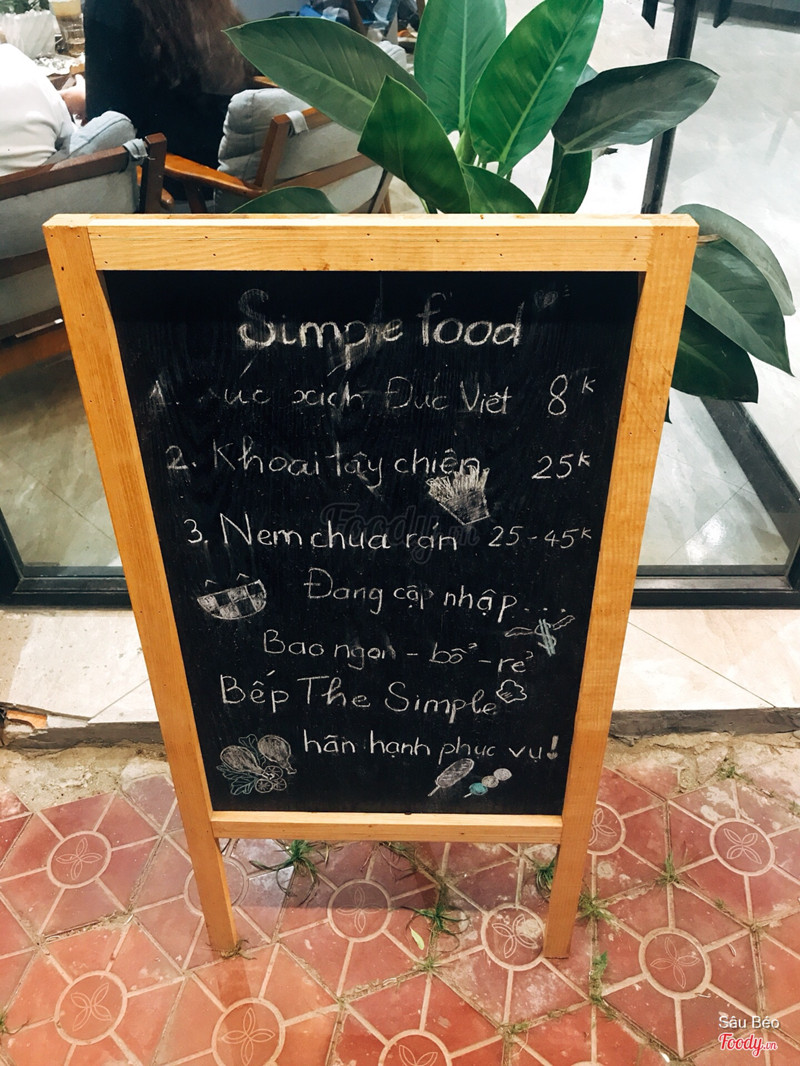 Simple food
1. Xúc xích Đức Việt 8k
2. Khoai tây chiên 25k
3. Nem chua rán 25-45k
Đang cập nhập...
Bao ngon - bổ - rẻ
Bếp The Simple
hãn hạnh phục vụ!
Foody.vn
Sâu Béo
Foody.vn